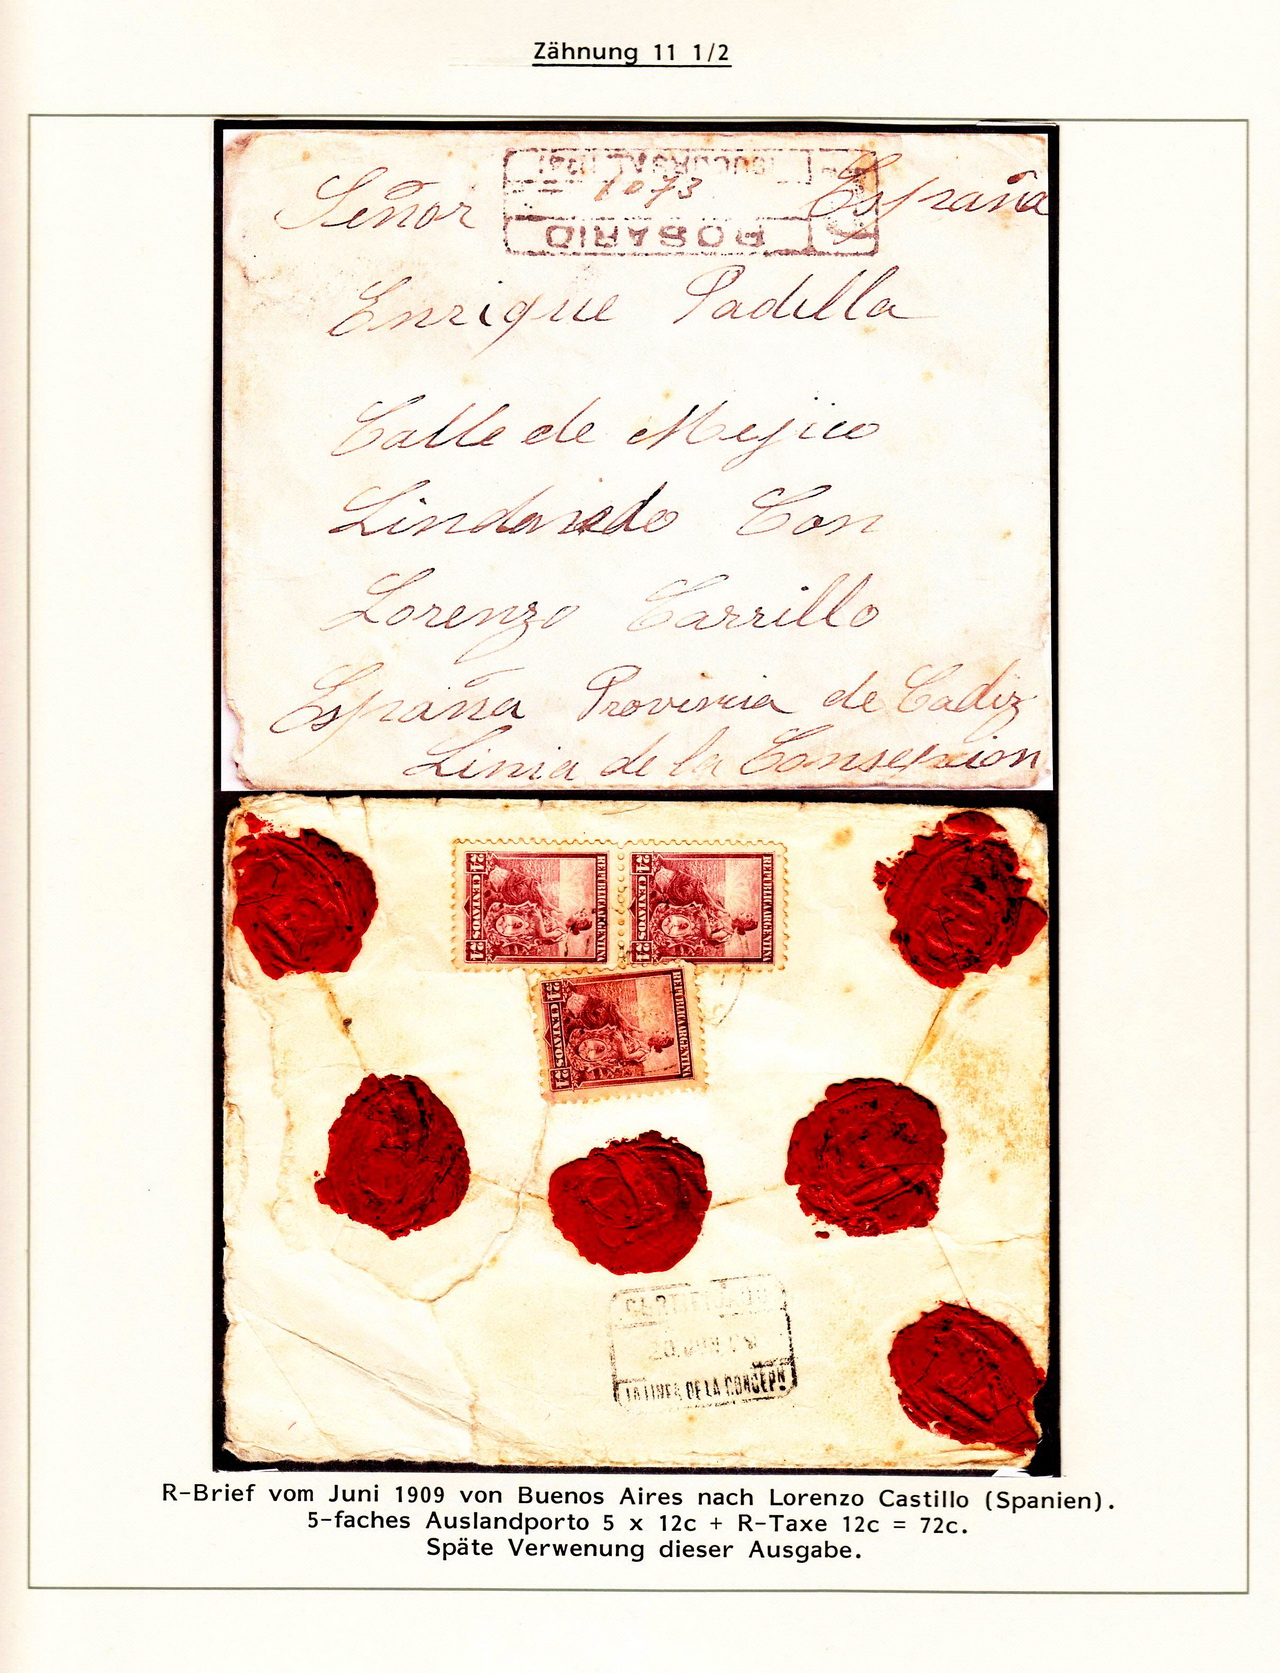 Zähnung 11 1/2
SUCURSAL
1073
R ROSARIO
Señor España
Enrique Padilla
Calle de Mejico
Lindando Con
Lorenzo Carrillo
España Provincia de Cadiz
Linia de la Consepcion
24 CENTAVOS 24
REPUBLICA ARGENTINA
24 CENTAVOS 24
REPUBLICA ARGENTINA
24 CENTAVOS 24
REPUBLICA ARGENTINA
CERTIFICADO
20 JUN 09
LA LINEA DE LA CONCEPN
R-Brief vom Juni 1909 von Buenos Aires nach Lorenzo Castillo (Spanien).
5-faches Auslandporto 5 x 12c + R-Taxe 12c = 72c.
Späte Verwenung dieser Ausgabe.